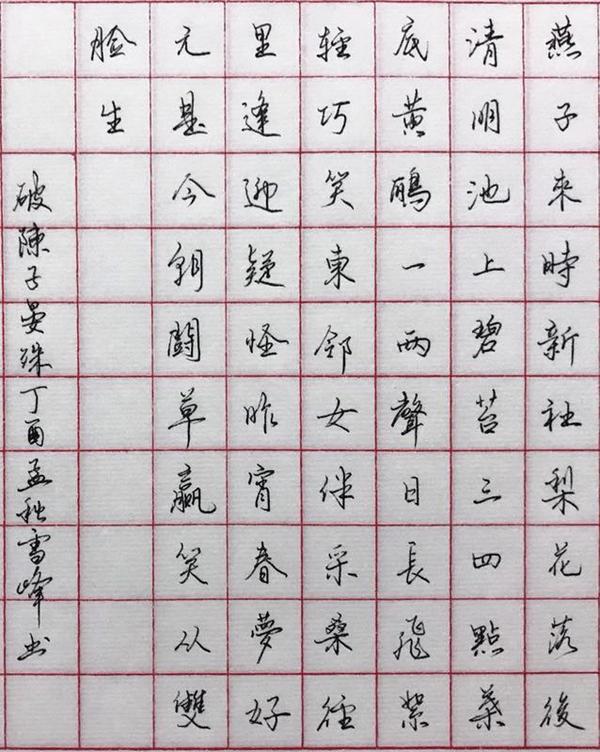 燕子來時新社梨花落後
清明池上碧苔三四點葉
底黃鸝一兩聲日長飛絮
輕巧笑東鄰女伴采桑徑
里逢迎疑怪昨宵春夢好
元是今朝闘草贏笑从雙
臉生
破陳子晏殊丁酉孟秋雪峰书